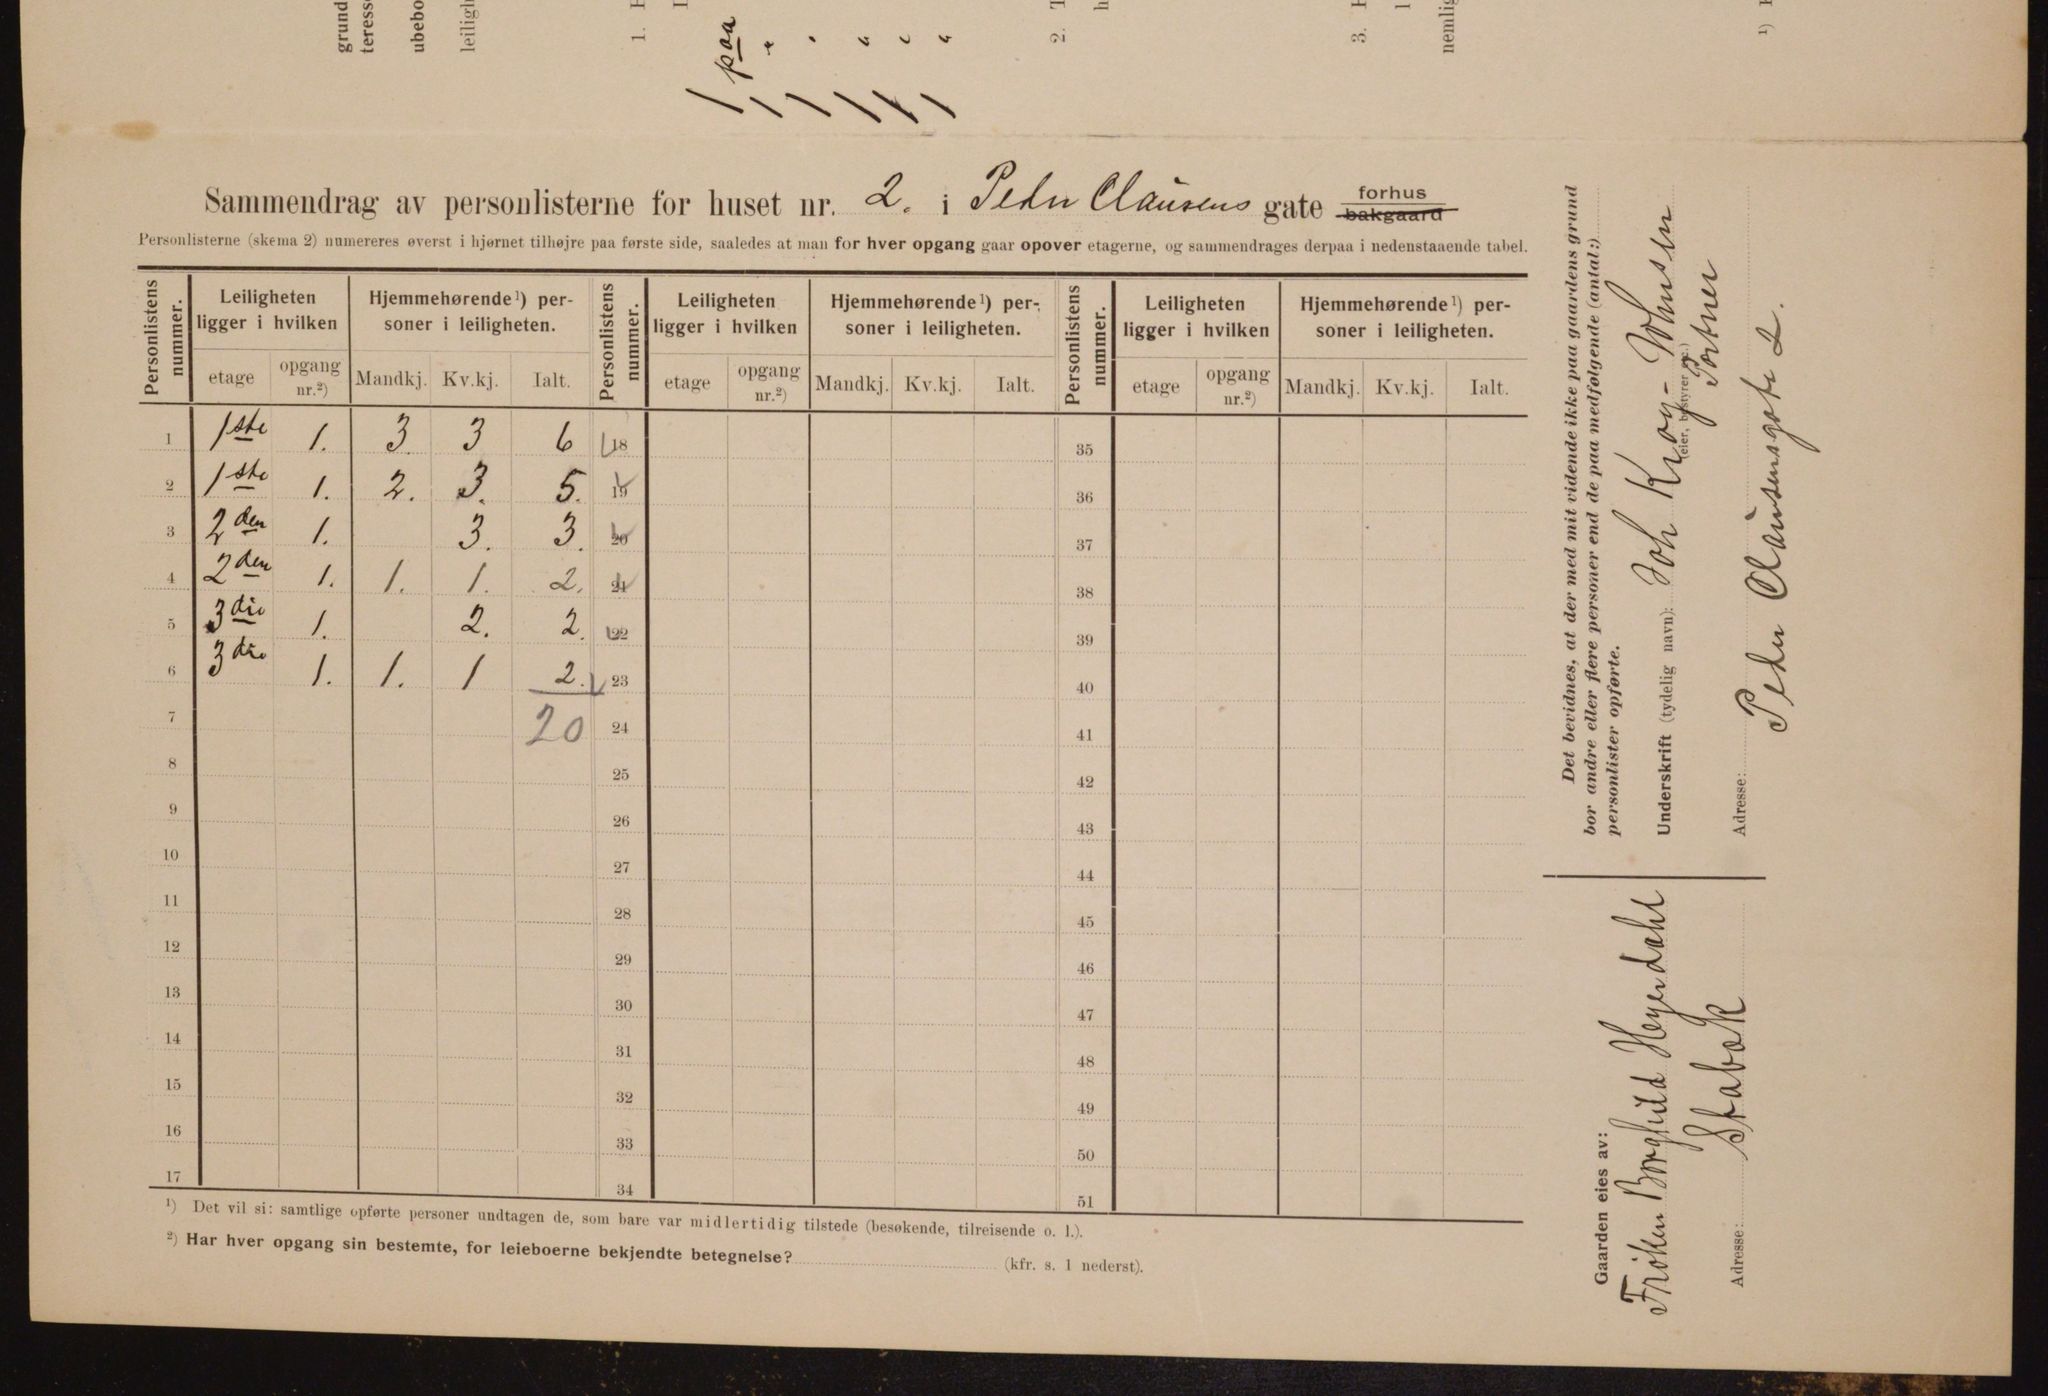 grund
teress
ubebo
leiligh
1. H
paa
2. T
3. F
nemlig
Sammendrag av personlisterne for huset nr. 2. i Peder Clausens gate forhus bakgaard
Personlisterne (skema 2) numereres øverst i hjørnet tilhøjre paa første side, saaledes at man for hver opgang gaar opover etagerne, og sammendrages derpaa i nedenstaaende tabel.
Personlistens nummer. Leiligheten ligger i hvilken Hjemmehørende¹) personer i leiligheten. Personlistens nummer. Leiligheten ligger i hvilken Hjemmehørende¹) personer i leiligheten. Personlistens nummer. Leiligheten ligger i hvilken Hjemmehørende¹) personer i leiligheten.
etage opgang nr.²) Mandkj. Kv.kj. Ialt. etage opgang nr.²) Mandkj. Kv.kj. Ialt. etage opgang nr.²) Mandkj. Kv.kj. Ialt.
1 1ste 1. 3 3 6 18 35
2 1ste 1. 2. 3. 5. 19 36
3 2den 1. 3. 3. 20 37
4 2den 1. 1. 1. 2. 21 38
5 3die 1. 2. 2. 22 39
6 3die 1. 1. 1 2. 23 40
7 20 24 41
8 25 42
9 26 43
10 27 44
11 28 45
12 29 46
13 30 47
14 31 48
15 32 49
16 33 50
17 34 51
¹) Det vil si: samtlige opførte personer undtagen de, som bare var midlertidig tilstede (besøkende, tilreisende o. l.).
²) Har hver opgang sin bestemte, for leieboerne bekjendte betegnelse? (kfr. s. 1 nederst).
Det bevidnes, at der med mit vidende ikke paa gaardens grund
bor andre eller flere personer end de paa medfølgende (antal:)
personlister opførte.
Underskrift (tydelig navn): Joh Krog-Johnsen
(eier, bestyrer etc.)
Portner
Adresse: Peder Clausensgate 2.
Gaarden eies av:
Frøken Borghild Heyerdahl
Adresse: Stabæk